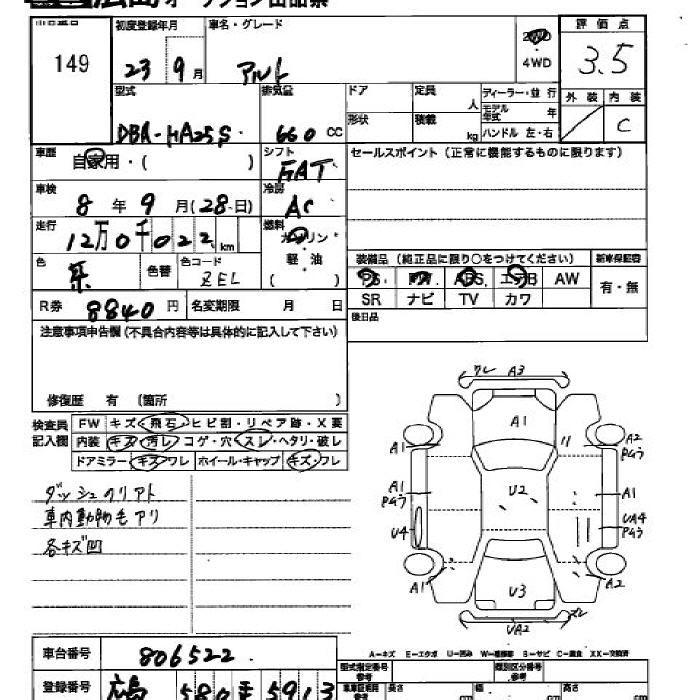 広島 オークション出品票
出品番号 149
初度登録年月 23 9月
車名・グレード アルト
2WD
4WD
評価点 3.5
外装 内装
C
型式 DBA-HA25S
排気量 660 CC
ドア 定員 人
形状 積載 kg
ディーラー・並行
モデル年式 年
ハンドル 左・右
車歴 自家用・( )
シフト FAT
セールスポイント(正常に機能するものに限ります)
車検 8年9月(28日)
冷房 AC
走行 12万0千022km
燃料 ガソリン
軽油
( )
色 茶 色替 色コード ZEL
装備品(純正品に限り○をつけてください) 新車保証書
PS PW ABS エアB AW 有・無
SR ナビ TV カワ
R券 8840円 名変期限 月 日
後日品
注意事項申告欄(不具合内容等は具体的に記入して下さい)
修復歴 有 〔箇所 〕
検査員記入欄
FW キズ・飛石・ヒビ割・リペア跡・X要
内装 キズ・汚レ・コゲ・穴・スレ・ヘタリ・破レ
ドアミラー・キズ・ワレ ホイール・キャップ・キズ・ワレ
ダッシュクリアト
車内動物毛アリ
各キズ凹
ワレ A3
A1
A1
A2
Pムラ
A1
Pムラ
U2
A1
U4
UA4
Pムラ
A1
U3
A2
UA2
A-キズ E-エクボ U-凹み W-補修部 S-サビ C-腐食 XX-交換済
車台番号 806522
登録番号 広島 580 モ 5913
型式指定番号 参考
類別区分番号 参考
長さ cm 幅 cm 高さ cm